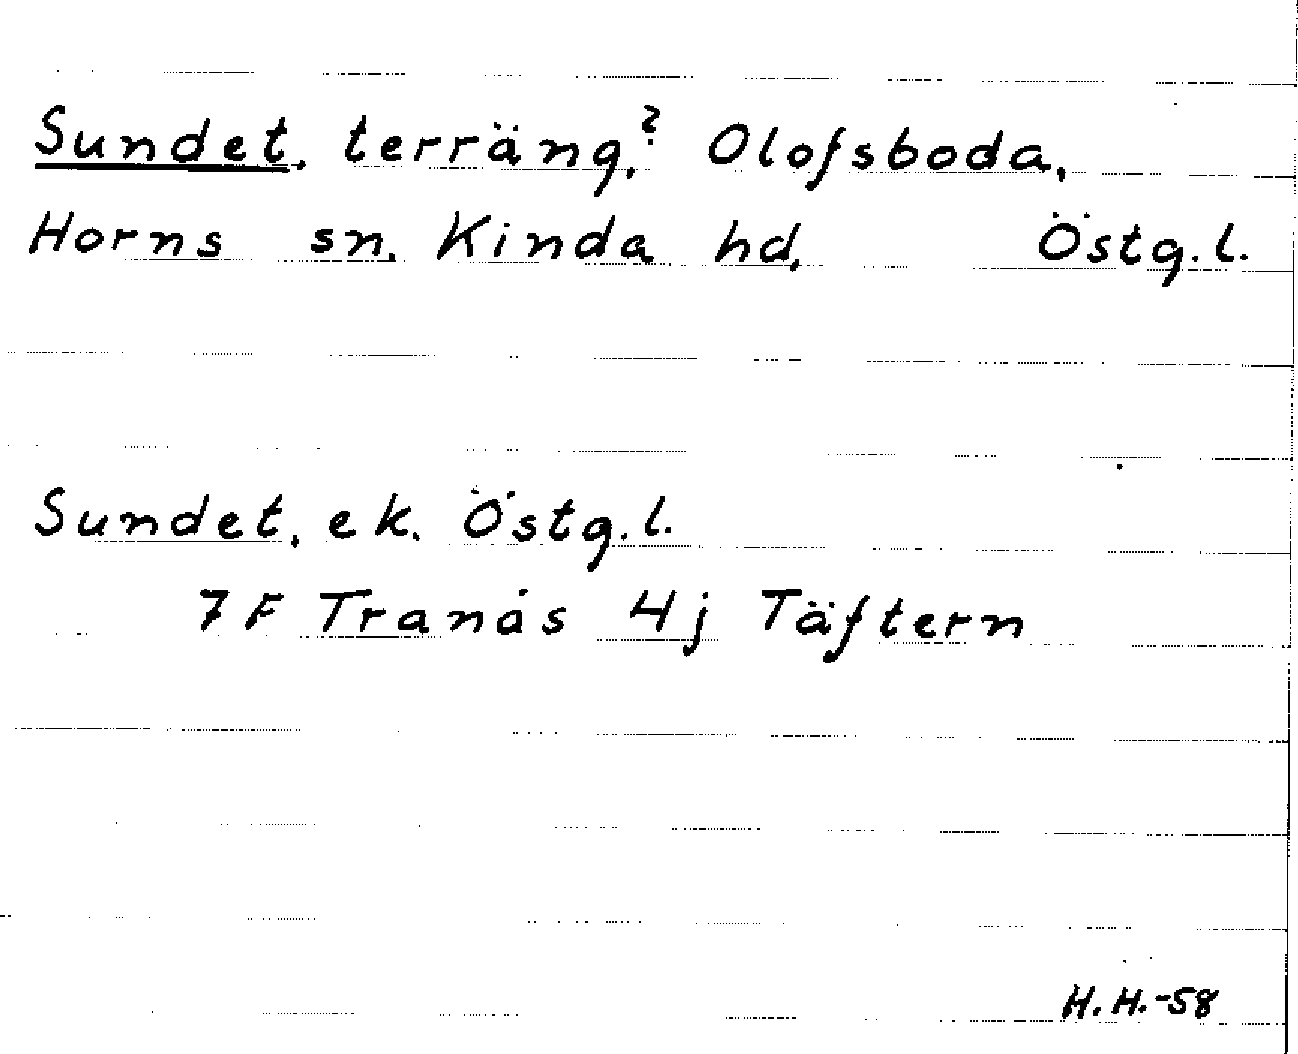 Sundet, terräng,? Olofsboda,
Horns sn, Kinda hd, Östg.l.
Sundet, ek. Östg.l.
7F Tranås 4j Täftern
H.H.-58